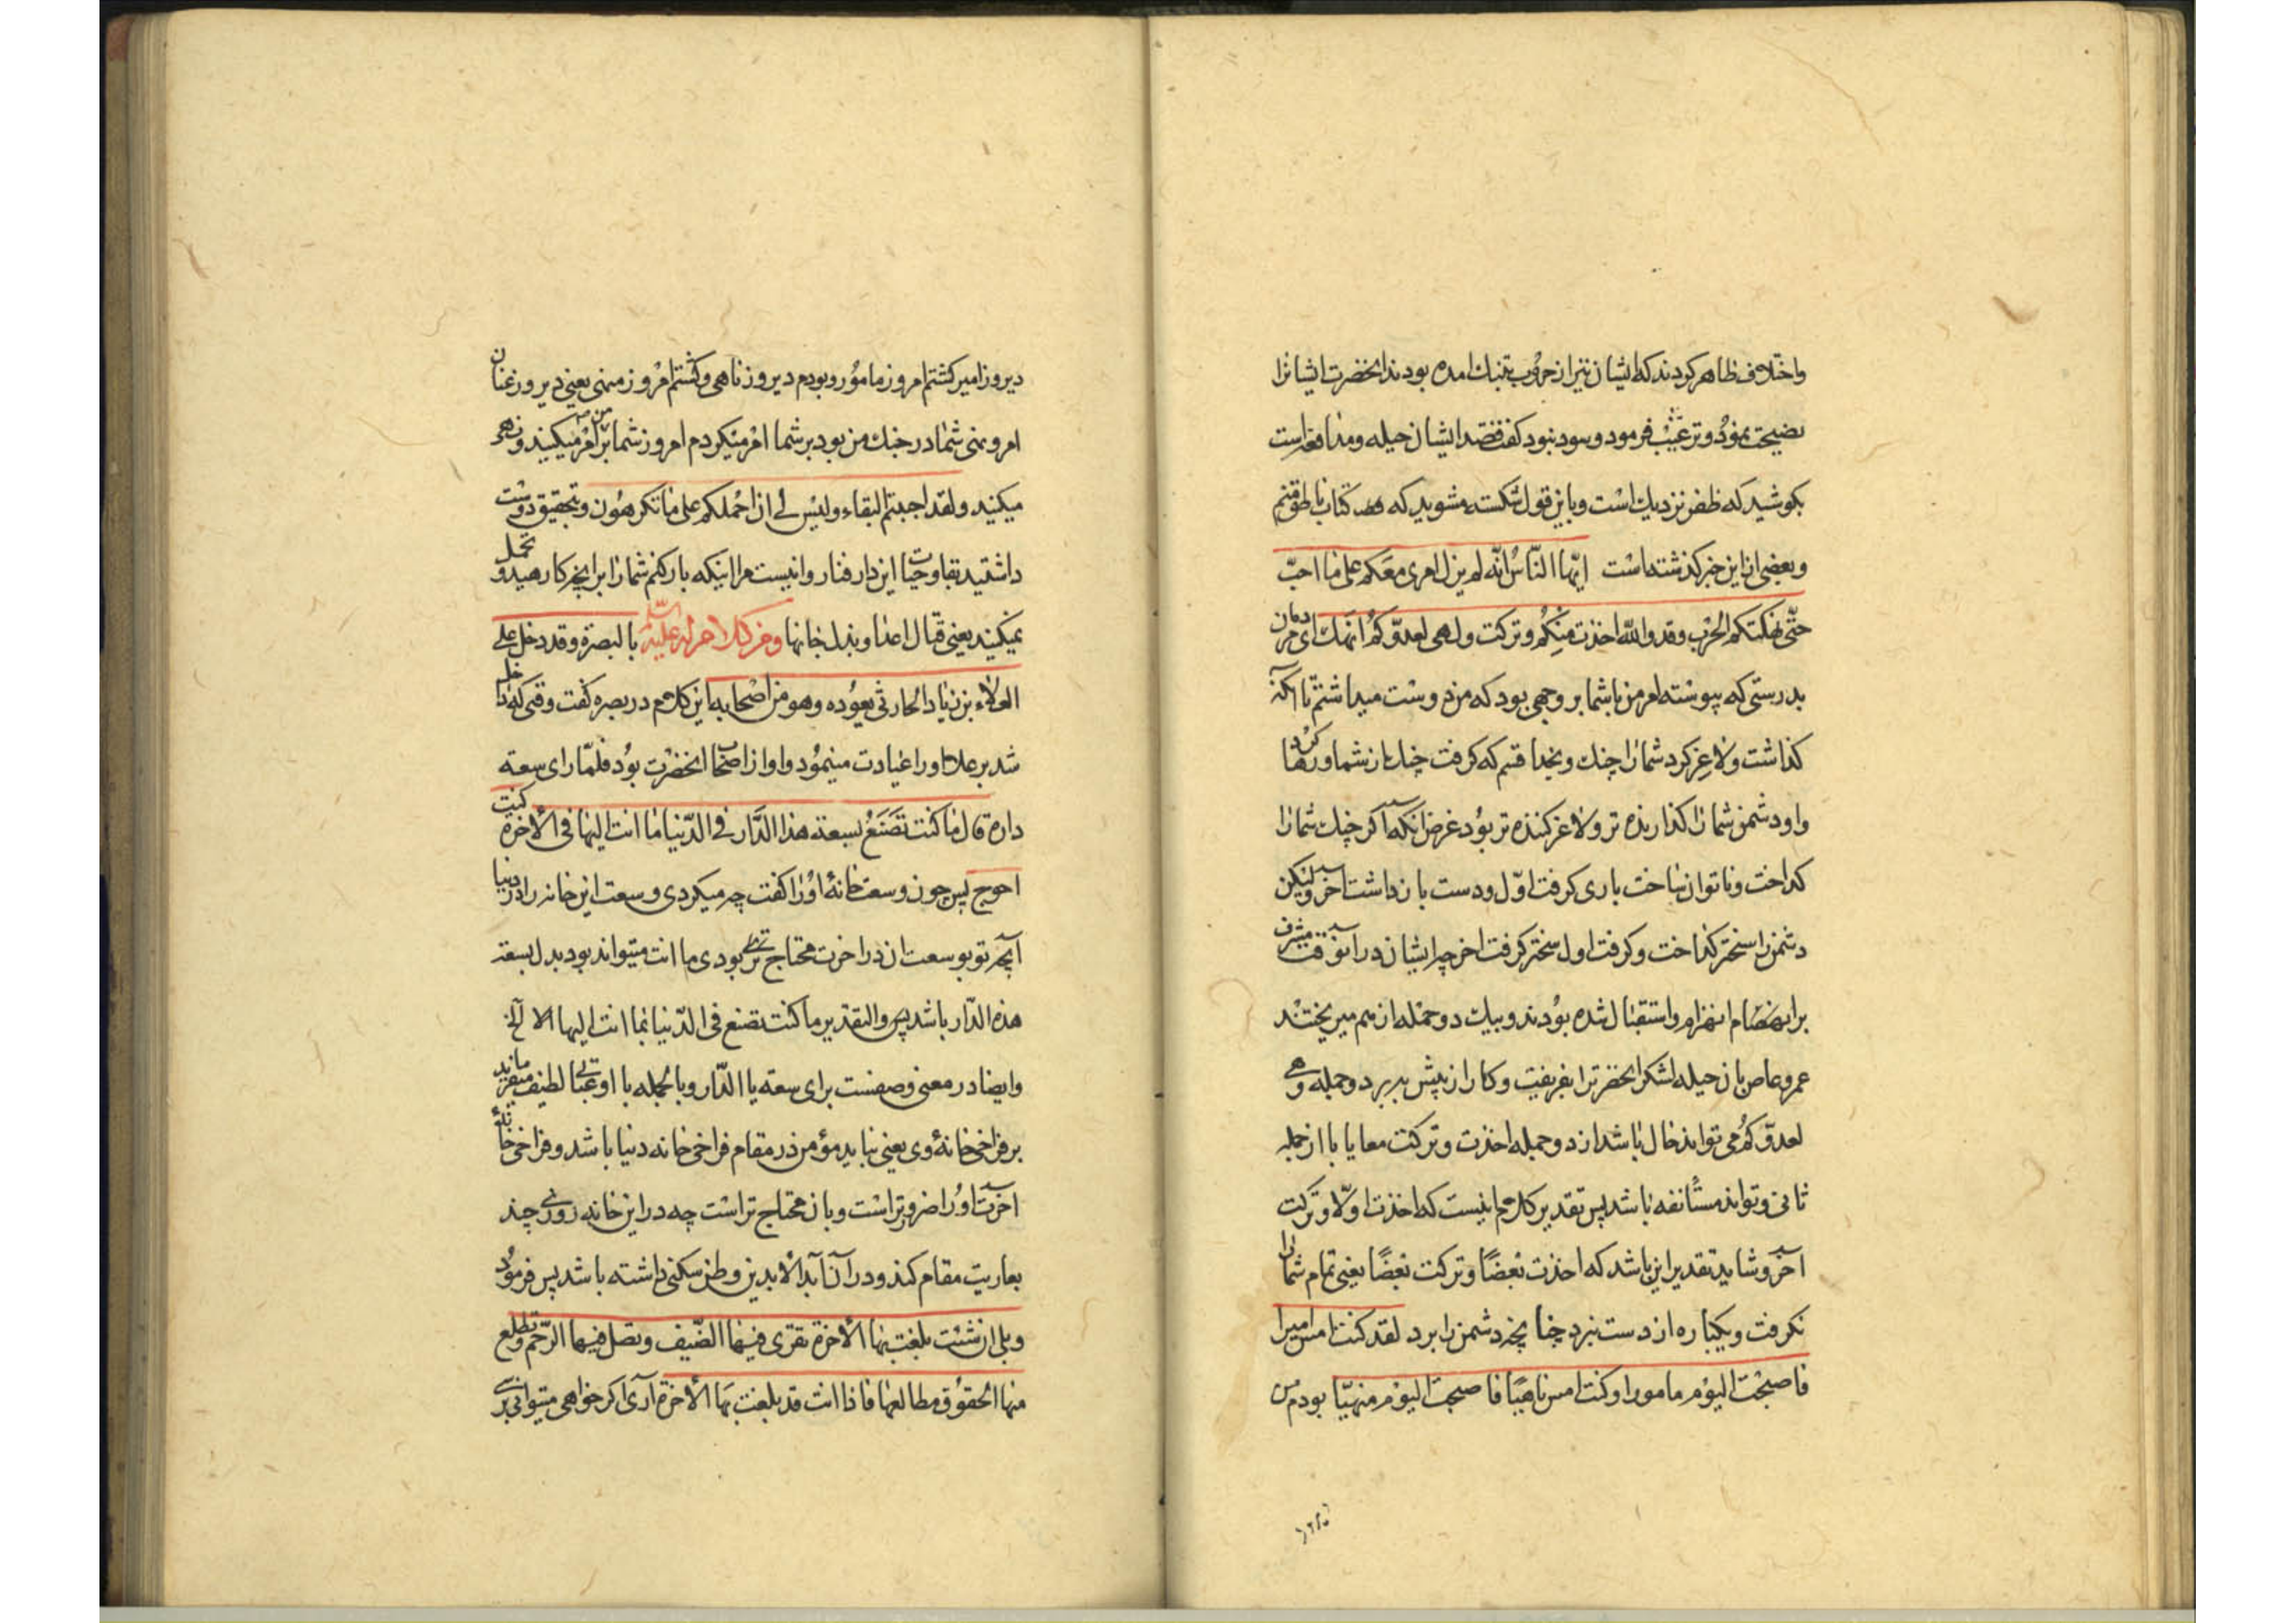 واختلاف ظاهر کردند که ایشان نیز از حروب بتنك امده بودند انحضرت ایشانرا
نضیحت نمود و ترغیب فرمود و سود نبود کفت قصد ایشان حیله و مدافعه است
بکوشید که ظفر نزدیك است و باین قول شکسته مشوید که کتاب ناطق منم
وبعضی از این خبر کذشته است ایّها النّاس انّه لم یزل امری معکم علی ما احبّ
حتّی نهکتکم الحرب وقد والله اخذت منکم وترکت وهی لعدوّکم انهك ای مردمان
بدرستی که پیوسته امر من باشما بر وجهی بود که من دوست میداشتم تا آنکه
کذاشت ولاغر کرد شمارا جنك وبخدا قسم که کرفت جنك از شما ورها کرد
واو دشمن شمارا کدازنده تر ولاغر کننده تر بود غرض آنکه اکر جنك شمارا
کداخت وناتوان ساخت باری کرفت اوّل ودست بازداشت اخر ولیکن
دشمن را سختر کداخت وکرفت اول سختر کرفت اخر چه ایشان در آنوقت مشرف
بر انهضام انهزام واستقبال شده بودند وبیك دو حمله از هم میریختند
عمرو عاص بان حیله لشکر انحضرترا بفریفت وکار از پیش ببرد وجمله وهی
لعدوّکم می تواند حال باشد از دو جمله اخذت وترکت معا یا با از جمله
ثانی وتواند مستأنفه باشد پس تقدیر کلام اینست که اخذت اولا وترکت
آخر وشاید تقدیر این باشد که اخذت بعضًا وترکت بعضًا یعنی تمام شمارا
نکرفت ویکباره از دست نبرد چنانچه دشمن را برد لقد کنت امس امیرا
فاصبحت الیوم مامورا وکنت امس ناهیًا فاصبحت الیوم منهیّا بودم من
دیروز امیر کشتم امروز مامور وبودم دیروز ناهی وکشتم امروز منهی یعنی دیروز عنان
امر ونهی شما در جنك من بود بر شما امر میکردم امروز شما بر من امر میکنید ونهی
میکنید ولقد احببتم البقاء ولیس لی ان احملکم علی ما تکرهون وبتحقیق دوست
داشتید بقا وحیات این دار فنار ونیست مرا اینکه بارکنم شمارا بر آنچه کارهید وتحمل
نمیکنید یعنی قتال اعدا وبذل جانها ومن کلام له علیه السّلام بالبصرة وقد دخل علی
العلاء بن زیاد الحارثی یعوده وهو من اصحابه این کلام در بصره کفت وقتی که داخل
شد بر علا اورا عیادت مینمود واو از اصحاب انحضرت بود فلمّا رای سعة
داره قال ما کنت تصنع بسعة هذا الدّار فی الدّنیا ما انت الیها فی الاخرة کنت
احوج پس چون وسعت خانهٔ اورا کفت چه میکردی وسعت این خانه را در دنیا
آنچه تو بوسعت ان در اخرت محتاج تری بودی ما انت میتواند بود بدل بسعة
هذه الدّار باشد پس والتقدیر ما کنت تصنع فی الدّنیا بما انت الیها الا آلخ
وایضا در معنی وصفست برای سعة یا الدّار وبالجمله با او عتابی لطیف میفرماید
بر فراخی خانهٔ وی یعنی نباید مؤمن در مقام فراخی خانه دنیا باشد وفراخی خانهٔ
اخرت اورا ضروتر است وبان محتاج تر است چه در این خانه روزی چند
بعاریت مقام کند ودر آن آبد الابدین وطن سکنی داشته باشد پس فرمود
وبلی ان شئت بلغت بها الآخرة تقری فیها الضّیف وتصل فیها الرّحم وتطلع
منها الحقوق مطالعها فاذا انت قد بلغت بها الآخرة آری اکر خواهی میتوانی